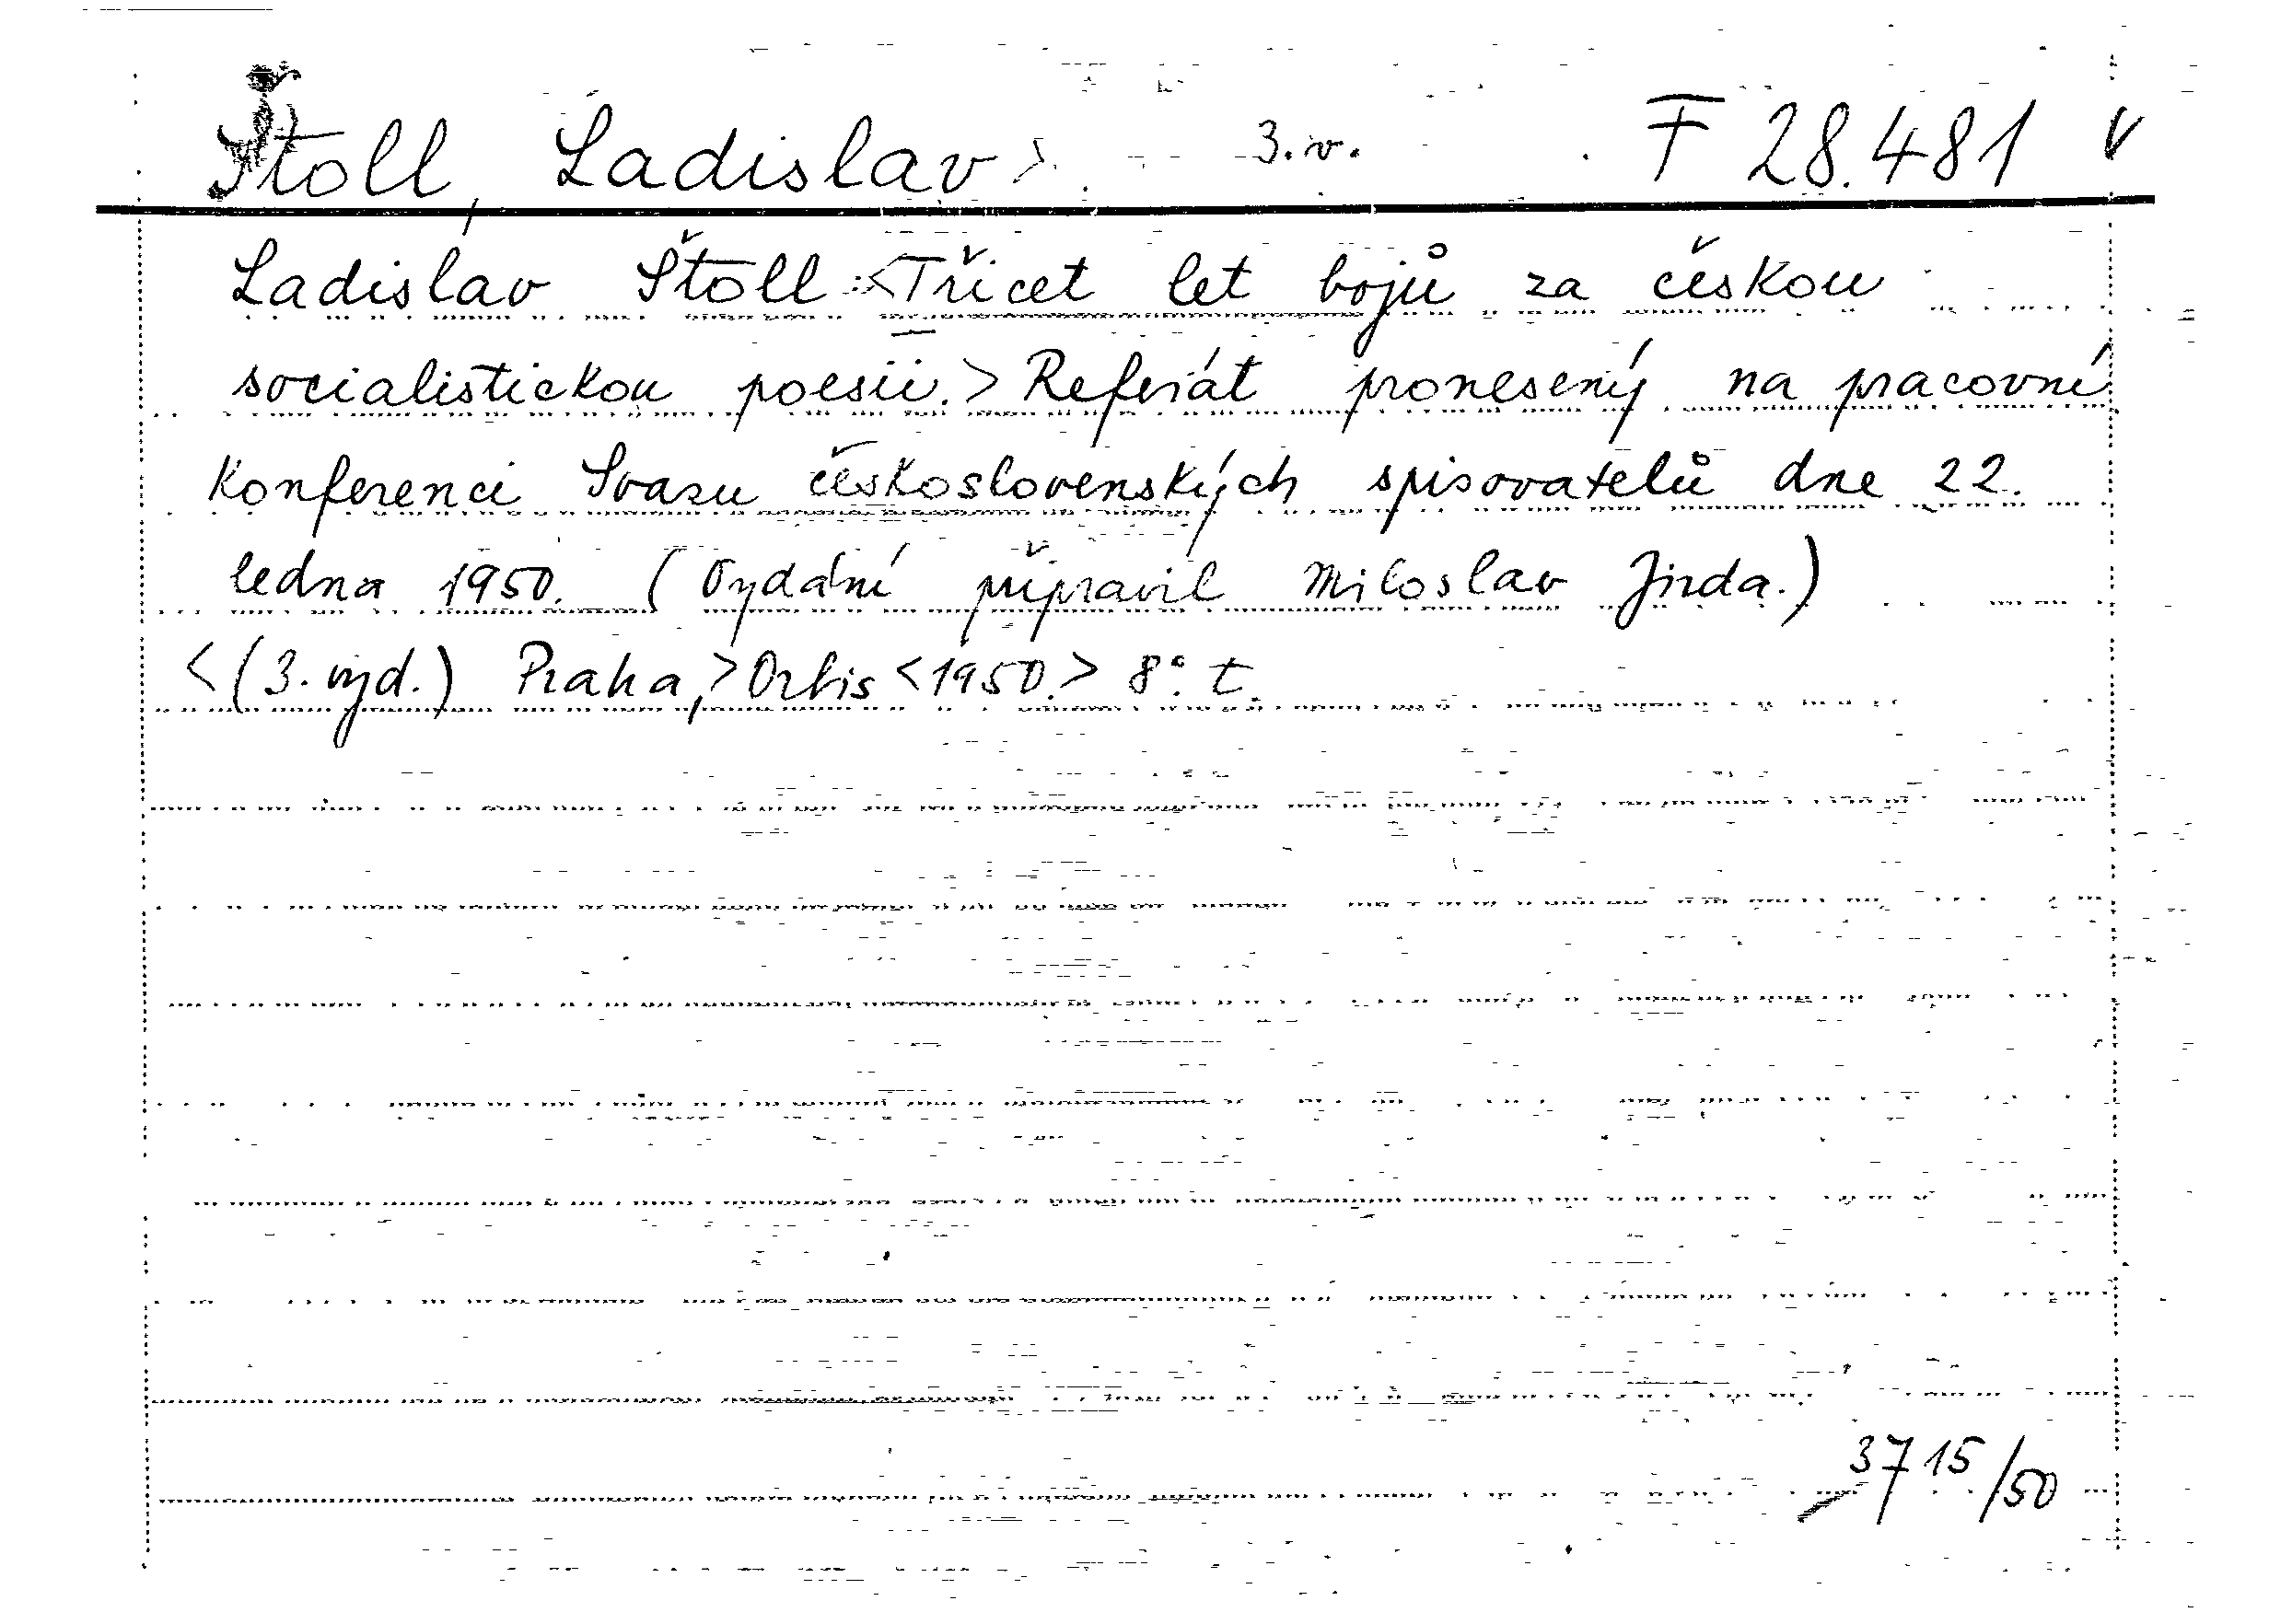 Štoll, Ladislav > 3.v. F 28.481 v
Ladislav Štoll: <Třicet let bojů za českou
socialistickou poesii.> Referát pronesený na pracovní
konferenci Svazu československých spisovatelů dne 22.
ledna 1950. (Vydání připravil Miloslav Jirda.)
<(3. vyd.) Praha,> Orbis <1950.> 8°. t.
3715/50